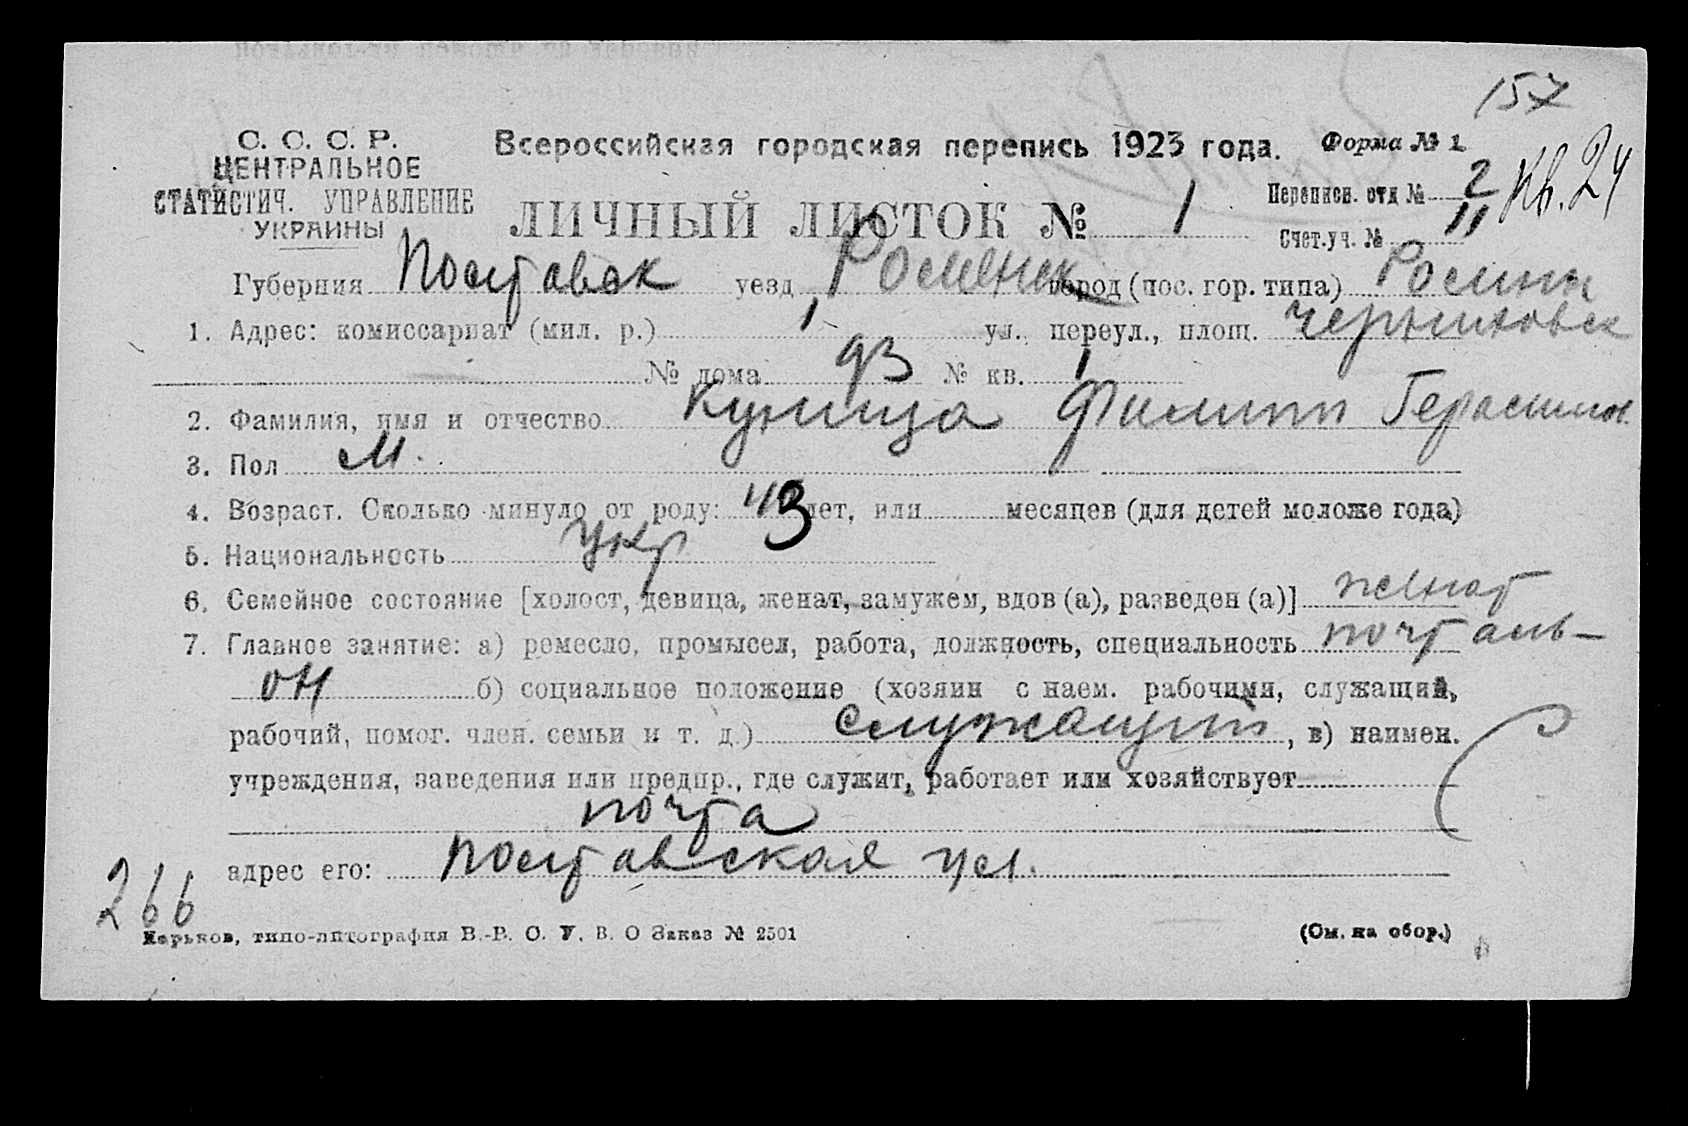 157
С. С. С. Р.
ЦЕНТРАЛЬНОЕ
СТАТИСТИЧ. УПРАВЛЕНИЕ
УКРАИНЫ
Всероссийская городская перепись 1923 года.
Форма № 1
ЛИЧНЫЙ ЛИСТОК № 1
Переписн. отд № 2
Счет.уч. № 11
кв. 24
Губерния Полтавск уезд Роменск город (пос. гор. типа) Ромны
1. Адрес: комиссариат (мил. р.) 1 ул., переул., площ.
№ дома № кв. 1
2. Фамилия, имя и отчество Куница Филипп Герасимов.
3. Пол М.
4. Возраст. Сколько минуло от роду: 43 лет, или месяцев (для детей моложе года)
5. Национальность Укр
6. Семейное состояние [холост, девица, женат, замужем, вдов (а), разведен (а)] женат
7. Главное занятие: а) ремесло, промысел, работа, должность, специальность почталь-
он б) социальное положение (хозяин с наем. рабочими, служащий,
рабочий, помог. член. семьи и т. д.) служащий, в) наимен.
учреждения, заведения или предпр., где служит, работает или хозяйствует
почта
адрес его: Полтавская ул.
266
Харьков, типо-литография В.-В. О. У. В. О Заказ № 2501
(См. на обор.)